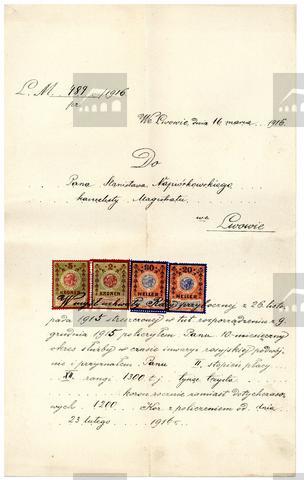 L. M. 489/1916
pr.
We Lwowie, dnia 16 marca 1916.
Do
Pana Stanisława
kancelisty Magistratu
we
Lwowie
KRONEN
HELLER
HELLER
W myśl uchwały Rady przybocznej z 26. listo-
pada 1915 i tut. rozporządzenia z 9.
grudnia 1915 policzyłem Panu 10-miesięczny
okres służby w czasie inwazyi rosyjskiej podwój-
nie i przyznałem Panu II. stopień płacy
XI. rangi 1300 t. j. tysiąc trzysta
koron rocznie zamiast dotychczaso-
wych 1200 Kor. z policzeniem od dnia
23 lutego 1916 r.